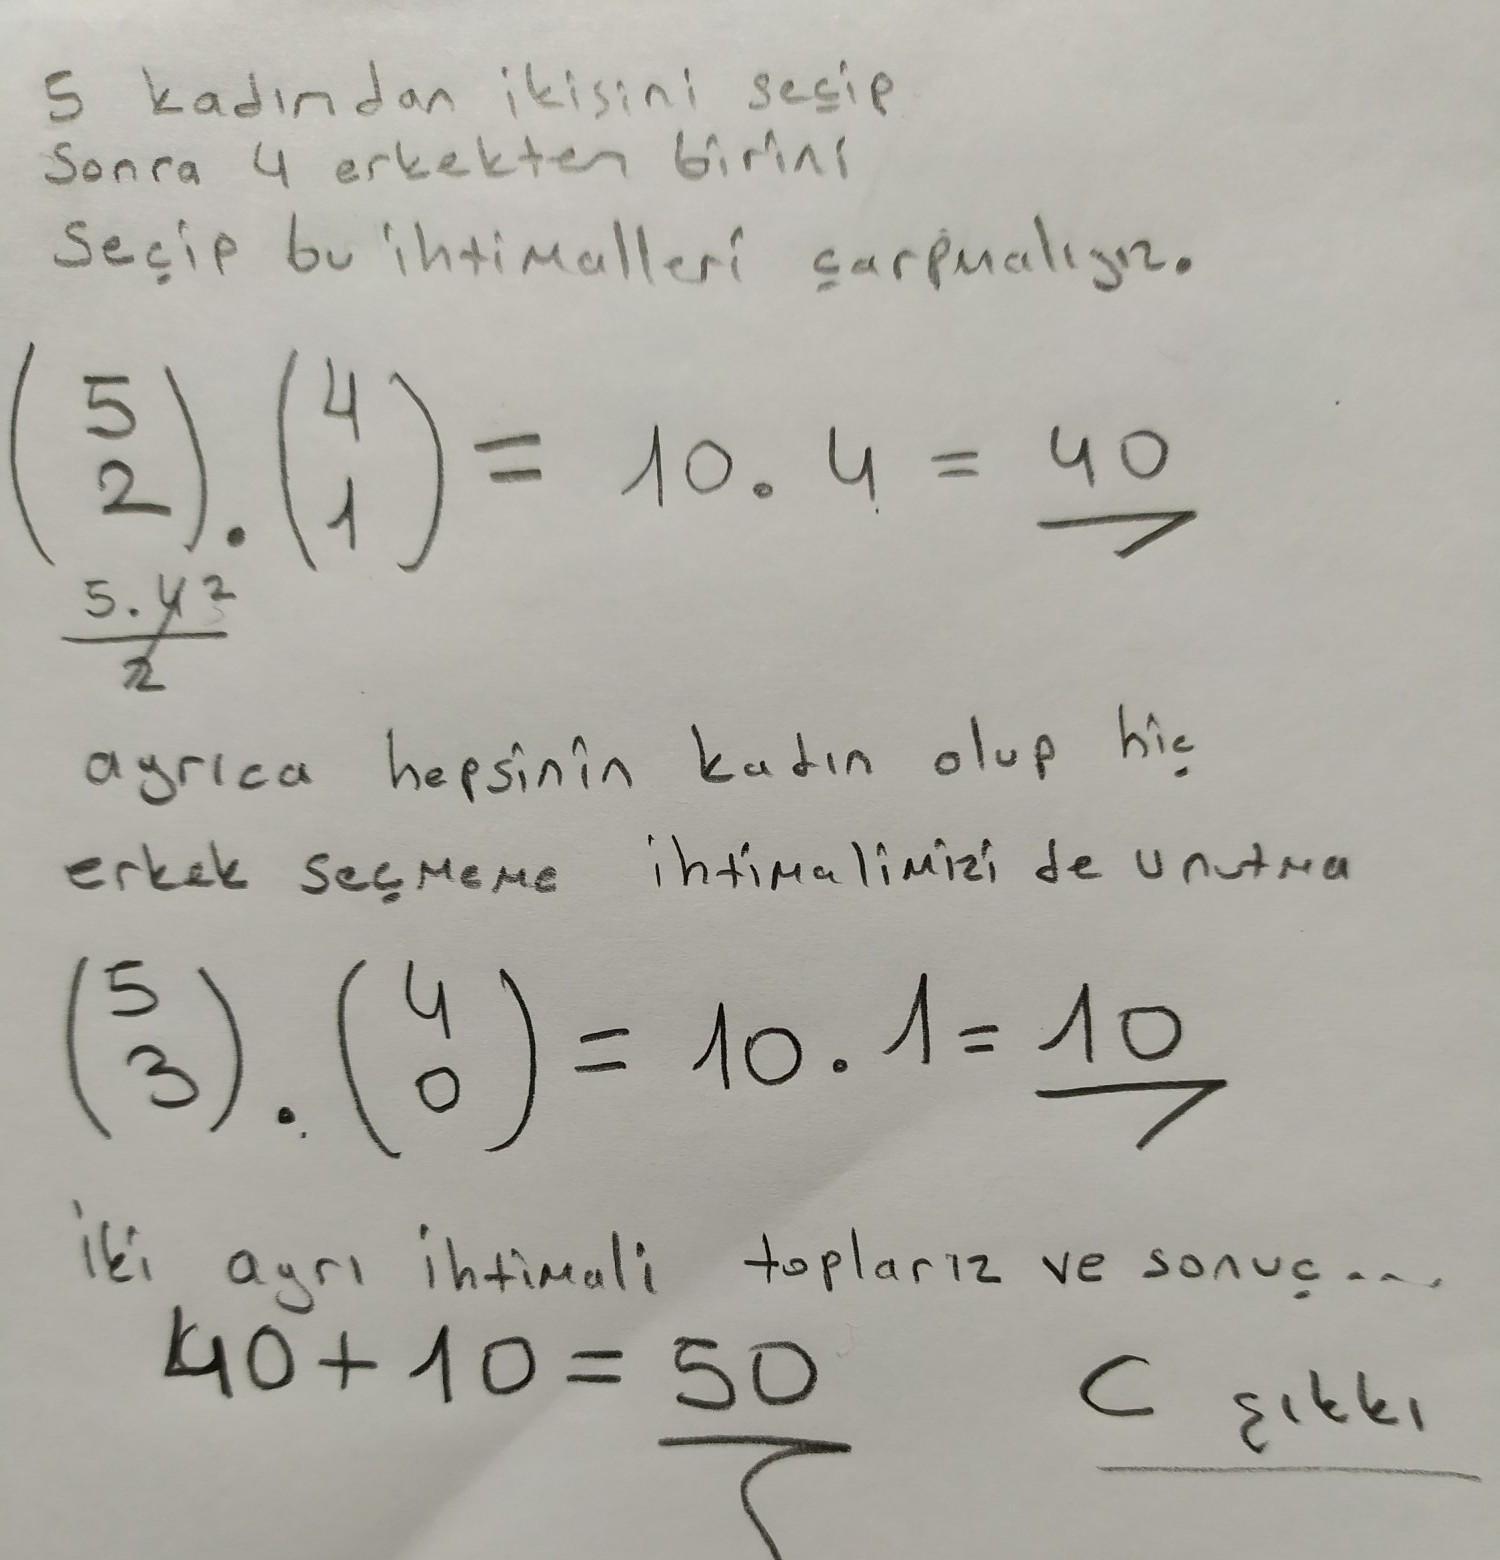 5 kadından ikisini seçip
Sonra 4 erkekten birini
Seçip bu ihtimalleri çarpmalıyız.
(5 2) . (4 1) = 10 . 4 = 40
5.4 2
2
ayrıca hepsinin kadın olup hiç
erkek seçmeme ihtimalimizi de unutma
(5 3) . (4 0) = 10 . 1 = 10
İki ayrı ihtimali toplarız ve sonuç....
40 + 10 = 50 C şıkkı